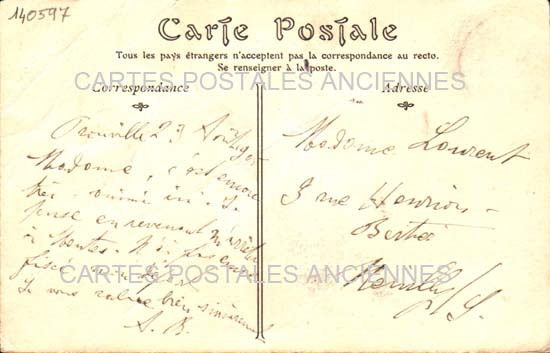 140597
Carte Postale
Tous les pays étrangers n'acceptent pas la correspondance au recto.
Se renseigner à la poste.
CARTES POSTALES ANCIENNES
Correspondance
Adresse
Trouville 27 Août
Madame, c'est encore
très animé ici. Je
pense en revenant m'arrêter
à Mantes.
Je vous salue bien sincèrement
A. B.
Madame Laurent
3 rue Henrion-
Bertier
Neuilly s/S.
CARTES POSTALES ANCIENNES